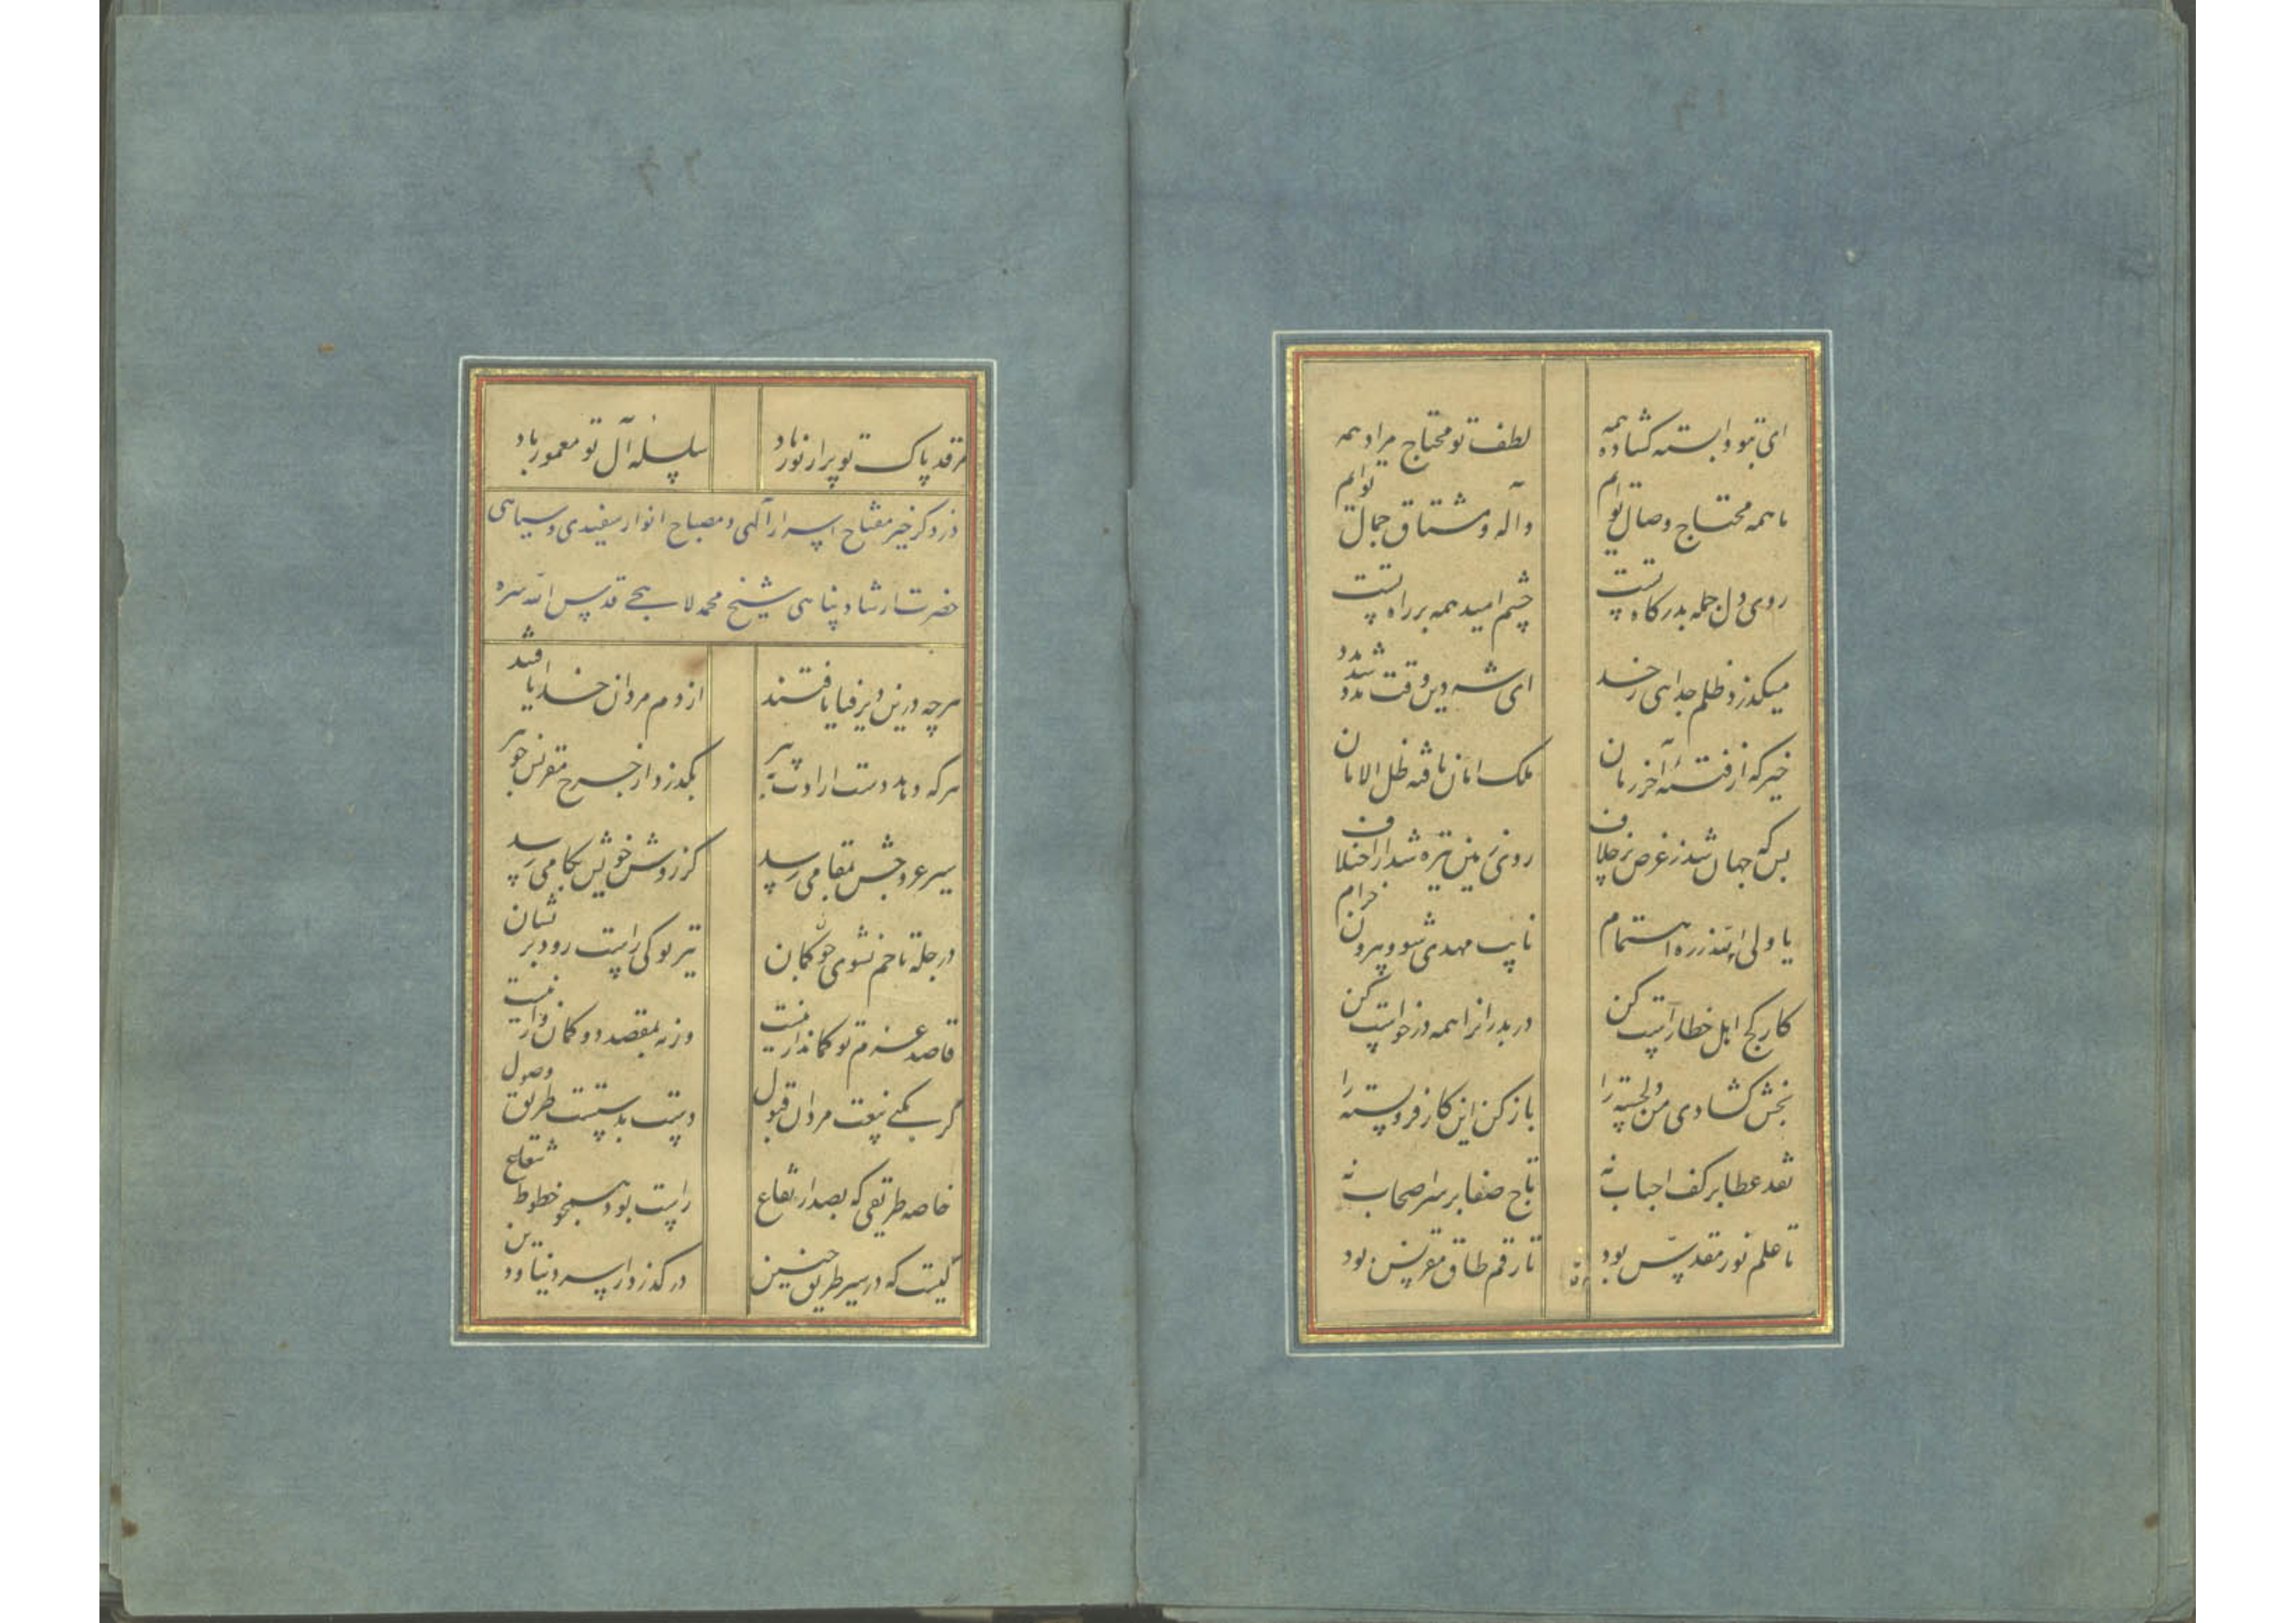 ای بتو وابسته کشاد همه لطف تو محتاج مراد همه
ما همه محتاج وصال توایم واله و مشتاق جمال توایم
روی دل جمله بدرگاه تست چشم امید همه بر راه تست
میگذرد ظلم جدایی ز حد ای شه دین وقت مدد شد مدد
خیز که از فتنه آخر زمان ملک امان یافته ظل الامان
بس که جهان شد ز غرض پر خلاف روی زمین تیره شد از اختلاف
یا ولی الله ز ره اهتمام نایب مهدی شو و بیرون خرام
کار کج اهل خطا راست کن در بدرانرا همه درخواست کن
بخش کشادی من دلخسته را باز کن این کار فرو بسته را
نقد عطا بر کف احباب نه تاج صفا بر سر اصحاب نه
تا علم نور مقدس بود تا رقم طاق مقرنس بود
مرقد پاک تو پر از نور باد سلسله آل تو معمور باد
در ذکر خیر مفتاح اسرار آلهی و مصباح انوار سفیدی و سیاهی
حضرت ارشاد پناهی شیخ محمد لاهجی قدس الله سره
هرچه درین دیر فنا یافتند از دم مردان خدا یافتند
هر که دهد دست ارادت به پیر بگذرد از چرخ مقرنس چو تیر
سیر عروجش بمقامی رسد کز روش خویش بکامی رسد
در چله تا خم نشوی چون کمان تیر تو کی راست رود بر نشان
قاصد عزم تو کماندار نیست ورنه بمقصد دو کمان وار نیست
گر بکنی بیعت مردان قبول دست بدستست طریق وصول
خاصه طریقی که بصد ارتفاع راست بود همچو خطوط شعاع
کیست که در سیر طریق چنین درگذرد از سر دنیا و دین